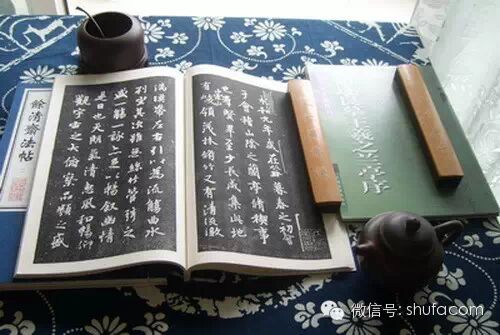 永和九年歲在癸丑暮春之初會
于會稽山陰之蘭亭脩稧事
也群賢畢至少長咸集此地
有崇山峻領茂林脩竹又有清流激
湍暎帶左右引以為流觴曲水
列坐其次雖無絲竹管弦之
盛一觴一詠亦足以暢敘幽情
是日也天朗氣清惠風和暢仰
觀宇宙之大俯察品類之盛
餘清齋法帖
王羲之兰亭序
微信号: shufacom